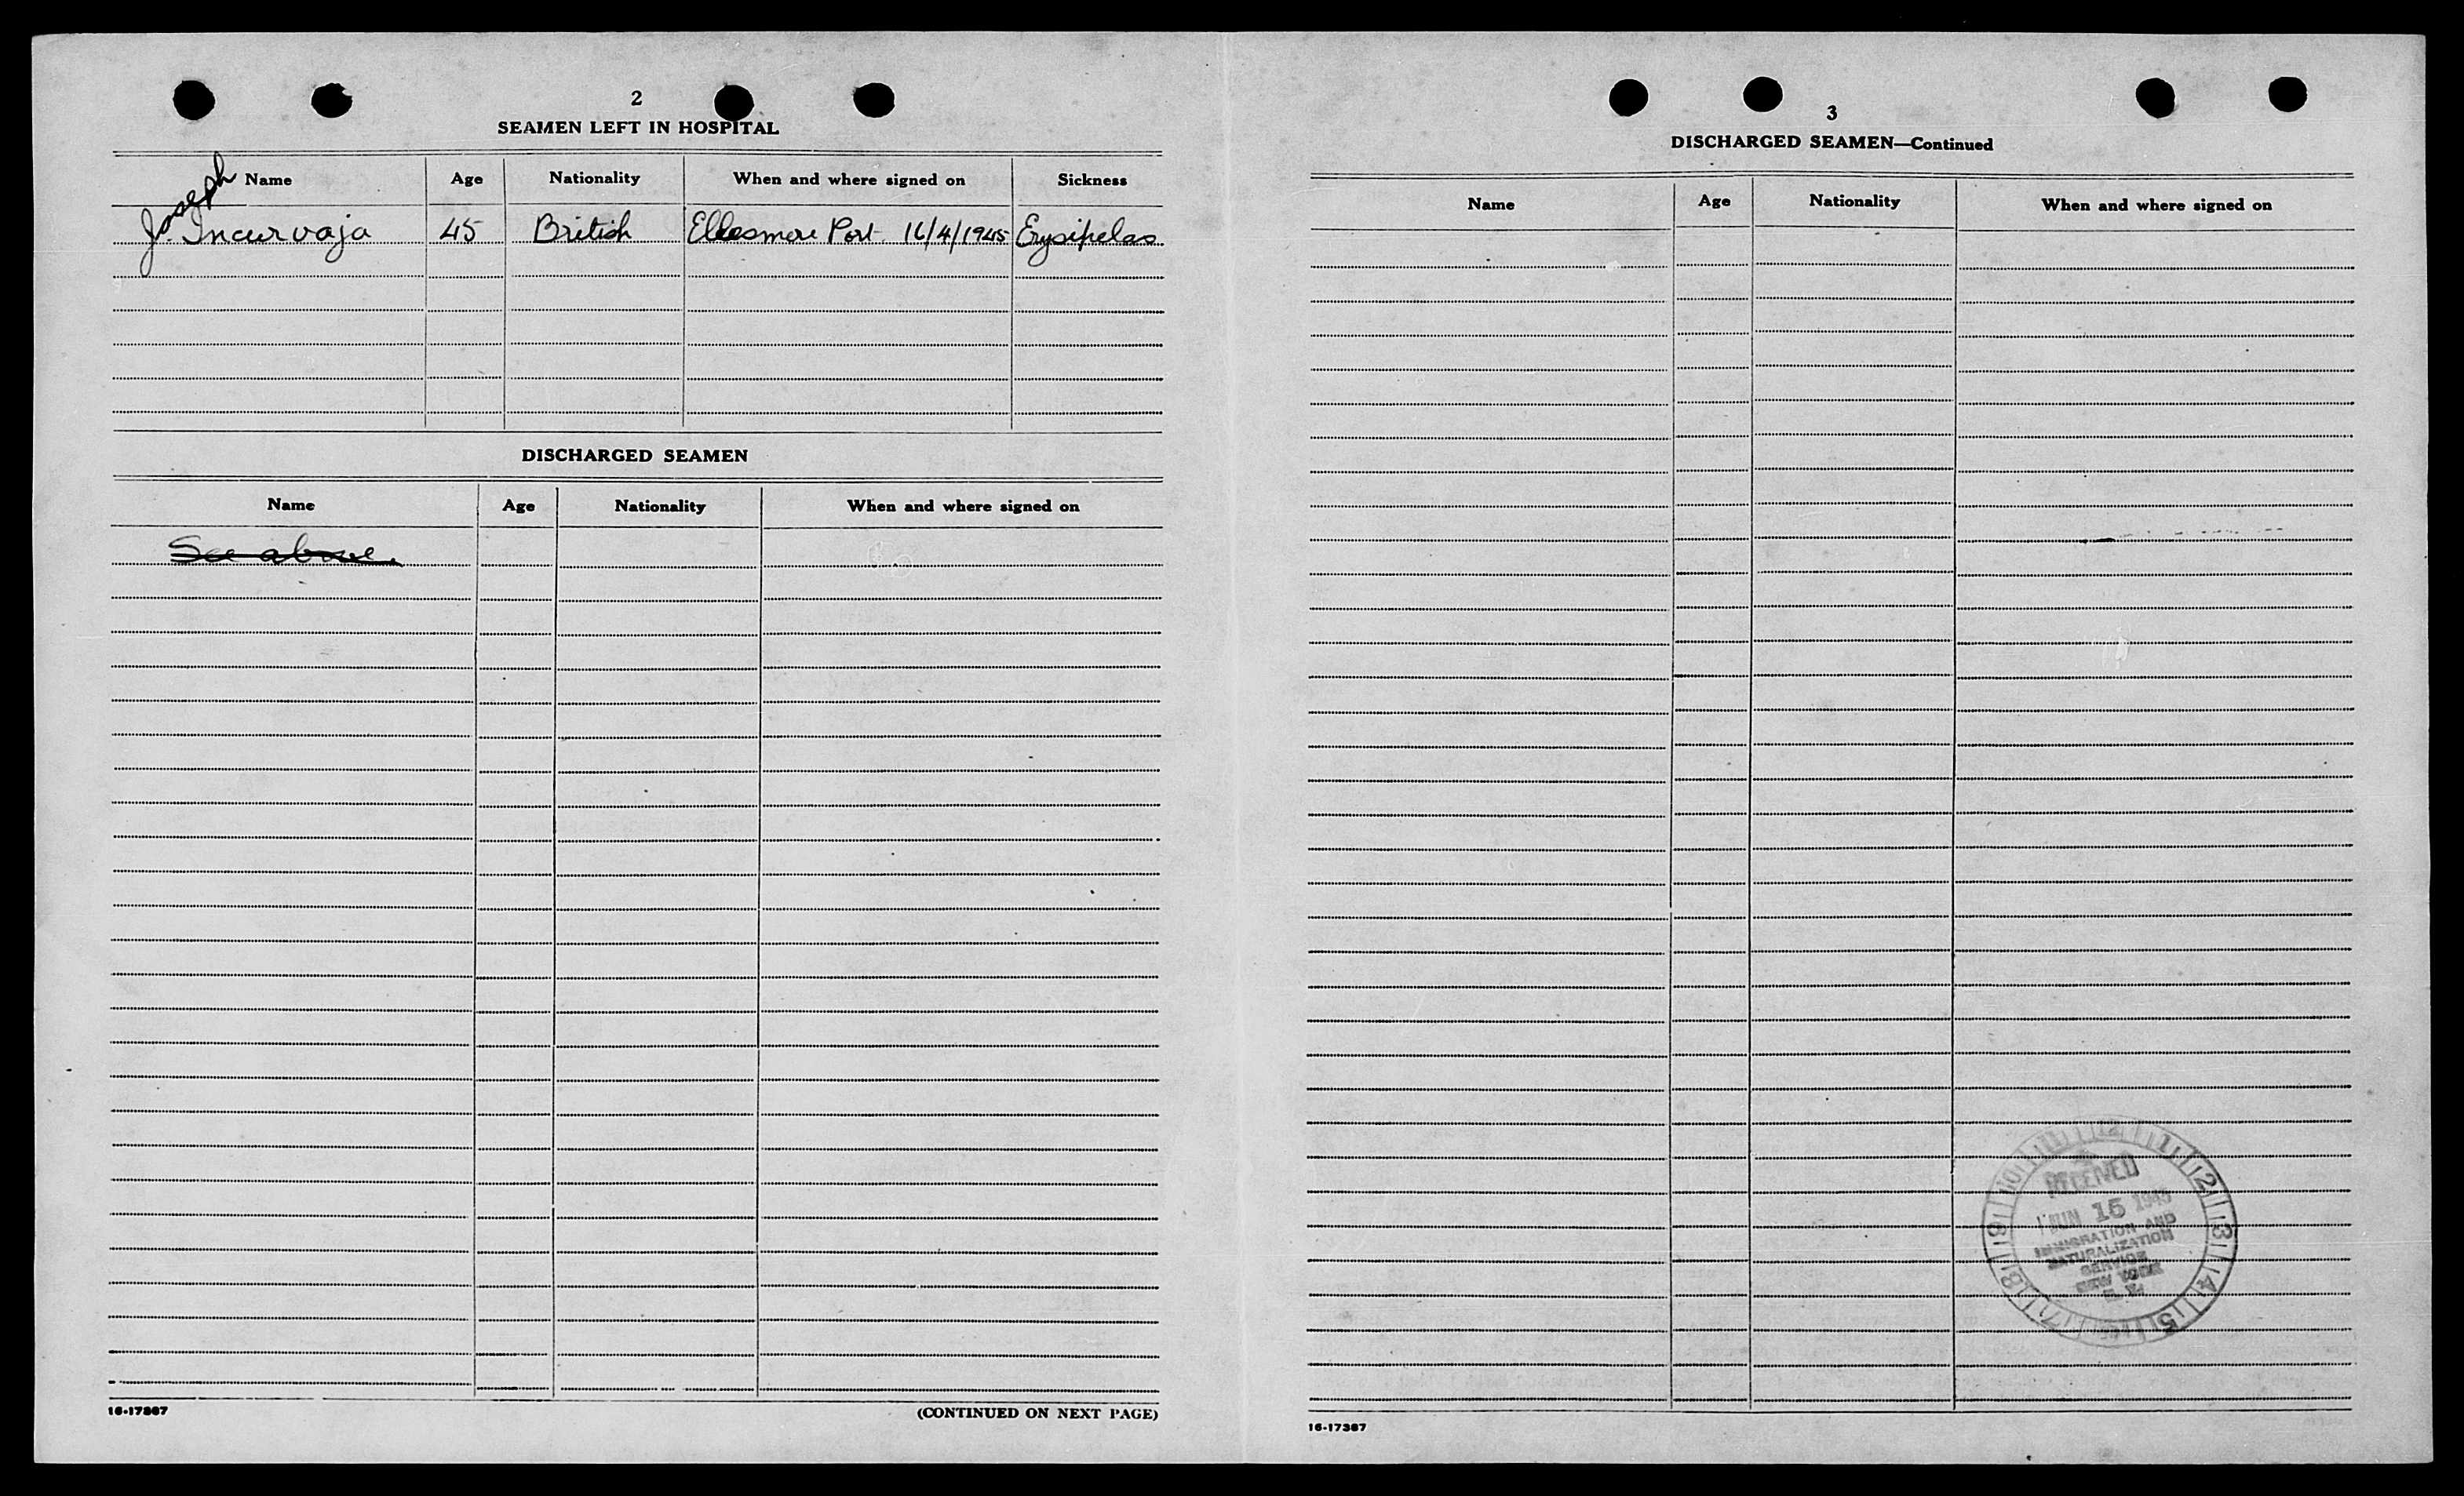 2
SEAMEN LEFT IN HOSPITAL
Name Age Nationality When and where signed on Sickness
Joseph
J. Incurvaja 45 British Ellesmere Port. 16/4/1945 Erysipelas
DISCHARGED SEAMEN
Name Age Nationality When and where signed on
See above.
16-17367 (CONTINUED ON NEXT PAGE)
3
DISCHARGED SEAMEN—Continued
Name Age Nationality When and where signed on
12 1 2 3 4 5 7 8 9 10
RECEIVED
JUN 15 1945
IMMIGRATION AND
NATURALIZATION
SERVICE
NEW YORK
N. Y.
16-17367